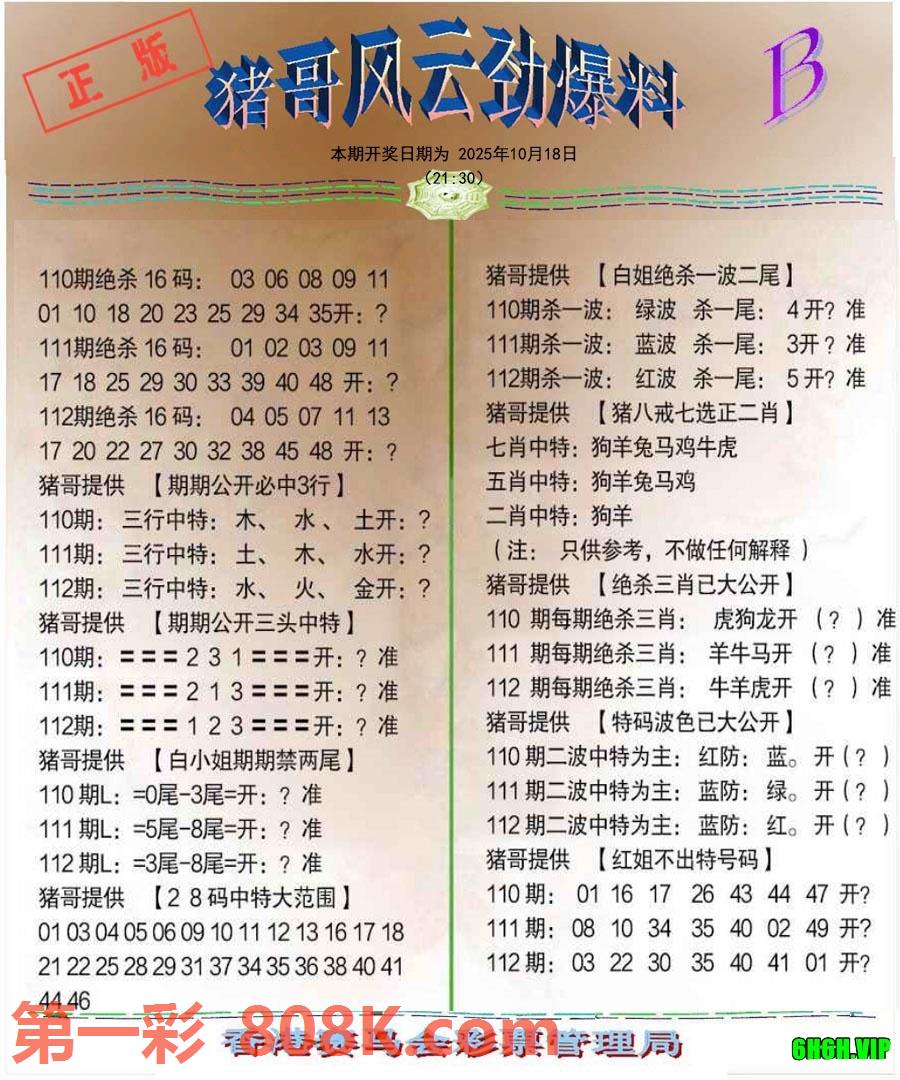 正版
猪哥风云劲爆料
B
本期开奖日期为 2025年10月18日
(21:30)
110期绝杀16码: 03 06 08 09 11
01 10 18 20 23 25 29 34 35开:?
111期绝杀16码: 01 02 03 09 11
17 18 25 29 30 33 39 40 48 开:?
112期绝杀16码: 04 05 07 11 13
17 20 22 27 30 32 38 45 48 开:?
猪哥提供 【期期公开必中3行】
110期: 三行中特: 木、 水、 土开:?
111期: 三行中特: 土、 木、 水开:?
112期: 三行中特: 水、 火、 金开:?
猪哥提供 【期期公开三头中特】
110期: 〓〓〓2 3 1〓〓〓开:? 准
111期: 〓〓〓2 1 3〓〓〓开:? 准
112期: 〓〓〓1 2 3〓〓〓开:? 准
猪哥提供 【白小姐期期禁两尾】
110期L: =0尾-3尾=开:? 准
111期L: =5尾-8尾=开:? 准
112期L: =3尾-8尾=开:? 准
猪哥提供 【28码中特大范围】
01 03 04 05 06 09 10 11 12 13 16 17 18
21 22 25 28 29 31 37 34 35 36 38 40 41
44 46
猪哥提供 【白姐绝杀一波二尾】
110期杀一波: 绿波 杀一尾: 4开? 准
111期杀一波: 蓝波 杀一尾: 3开? 准
112期杀一波: 红波 杀一尾: 5开? 准
猪哥提供 【猪八戒七选正二肖】
七肖中特: 狗羊兔马鸡牛虎
五肖中特: 狗羊兔马鸡
二肖中特: 狗羊
(注: 只供参考,不做任何解释)
猪哥提供 【绝杀三肖已大公开】
110 期每期绝杀三肖: 虎狗龙开 (?)准
111 期每期绝杀三肖: 羊牛马开 (?)准
112 期每期绝杀三肖: 牛羊虎开 (?)准
猪哥提供 【特码波色已大公开】
110期二波中特为主: 红防: 蓝。开(?)
111期二波中特为主: 蓝防: 绿。开(?)
112期二波中特为主: 蓝防: 红。开(?)
猪哥提供 【红姐不出特号码】
110期: 01 16 17 26 43 44 47 开?
111期: 08 10 34 35 40 02 49 开?
112期: 03 22 30 35 40 41 01 开?
第一彩 808K.com
香港赛马会彩票管理局
6H6H.VIP